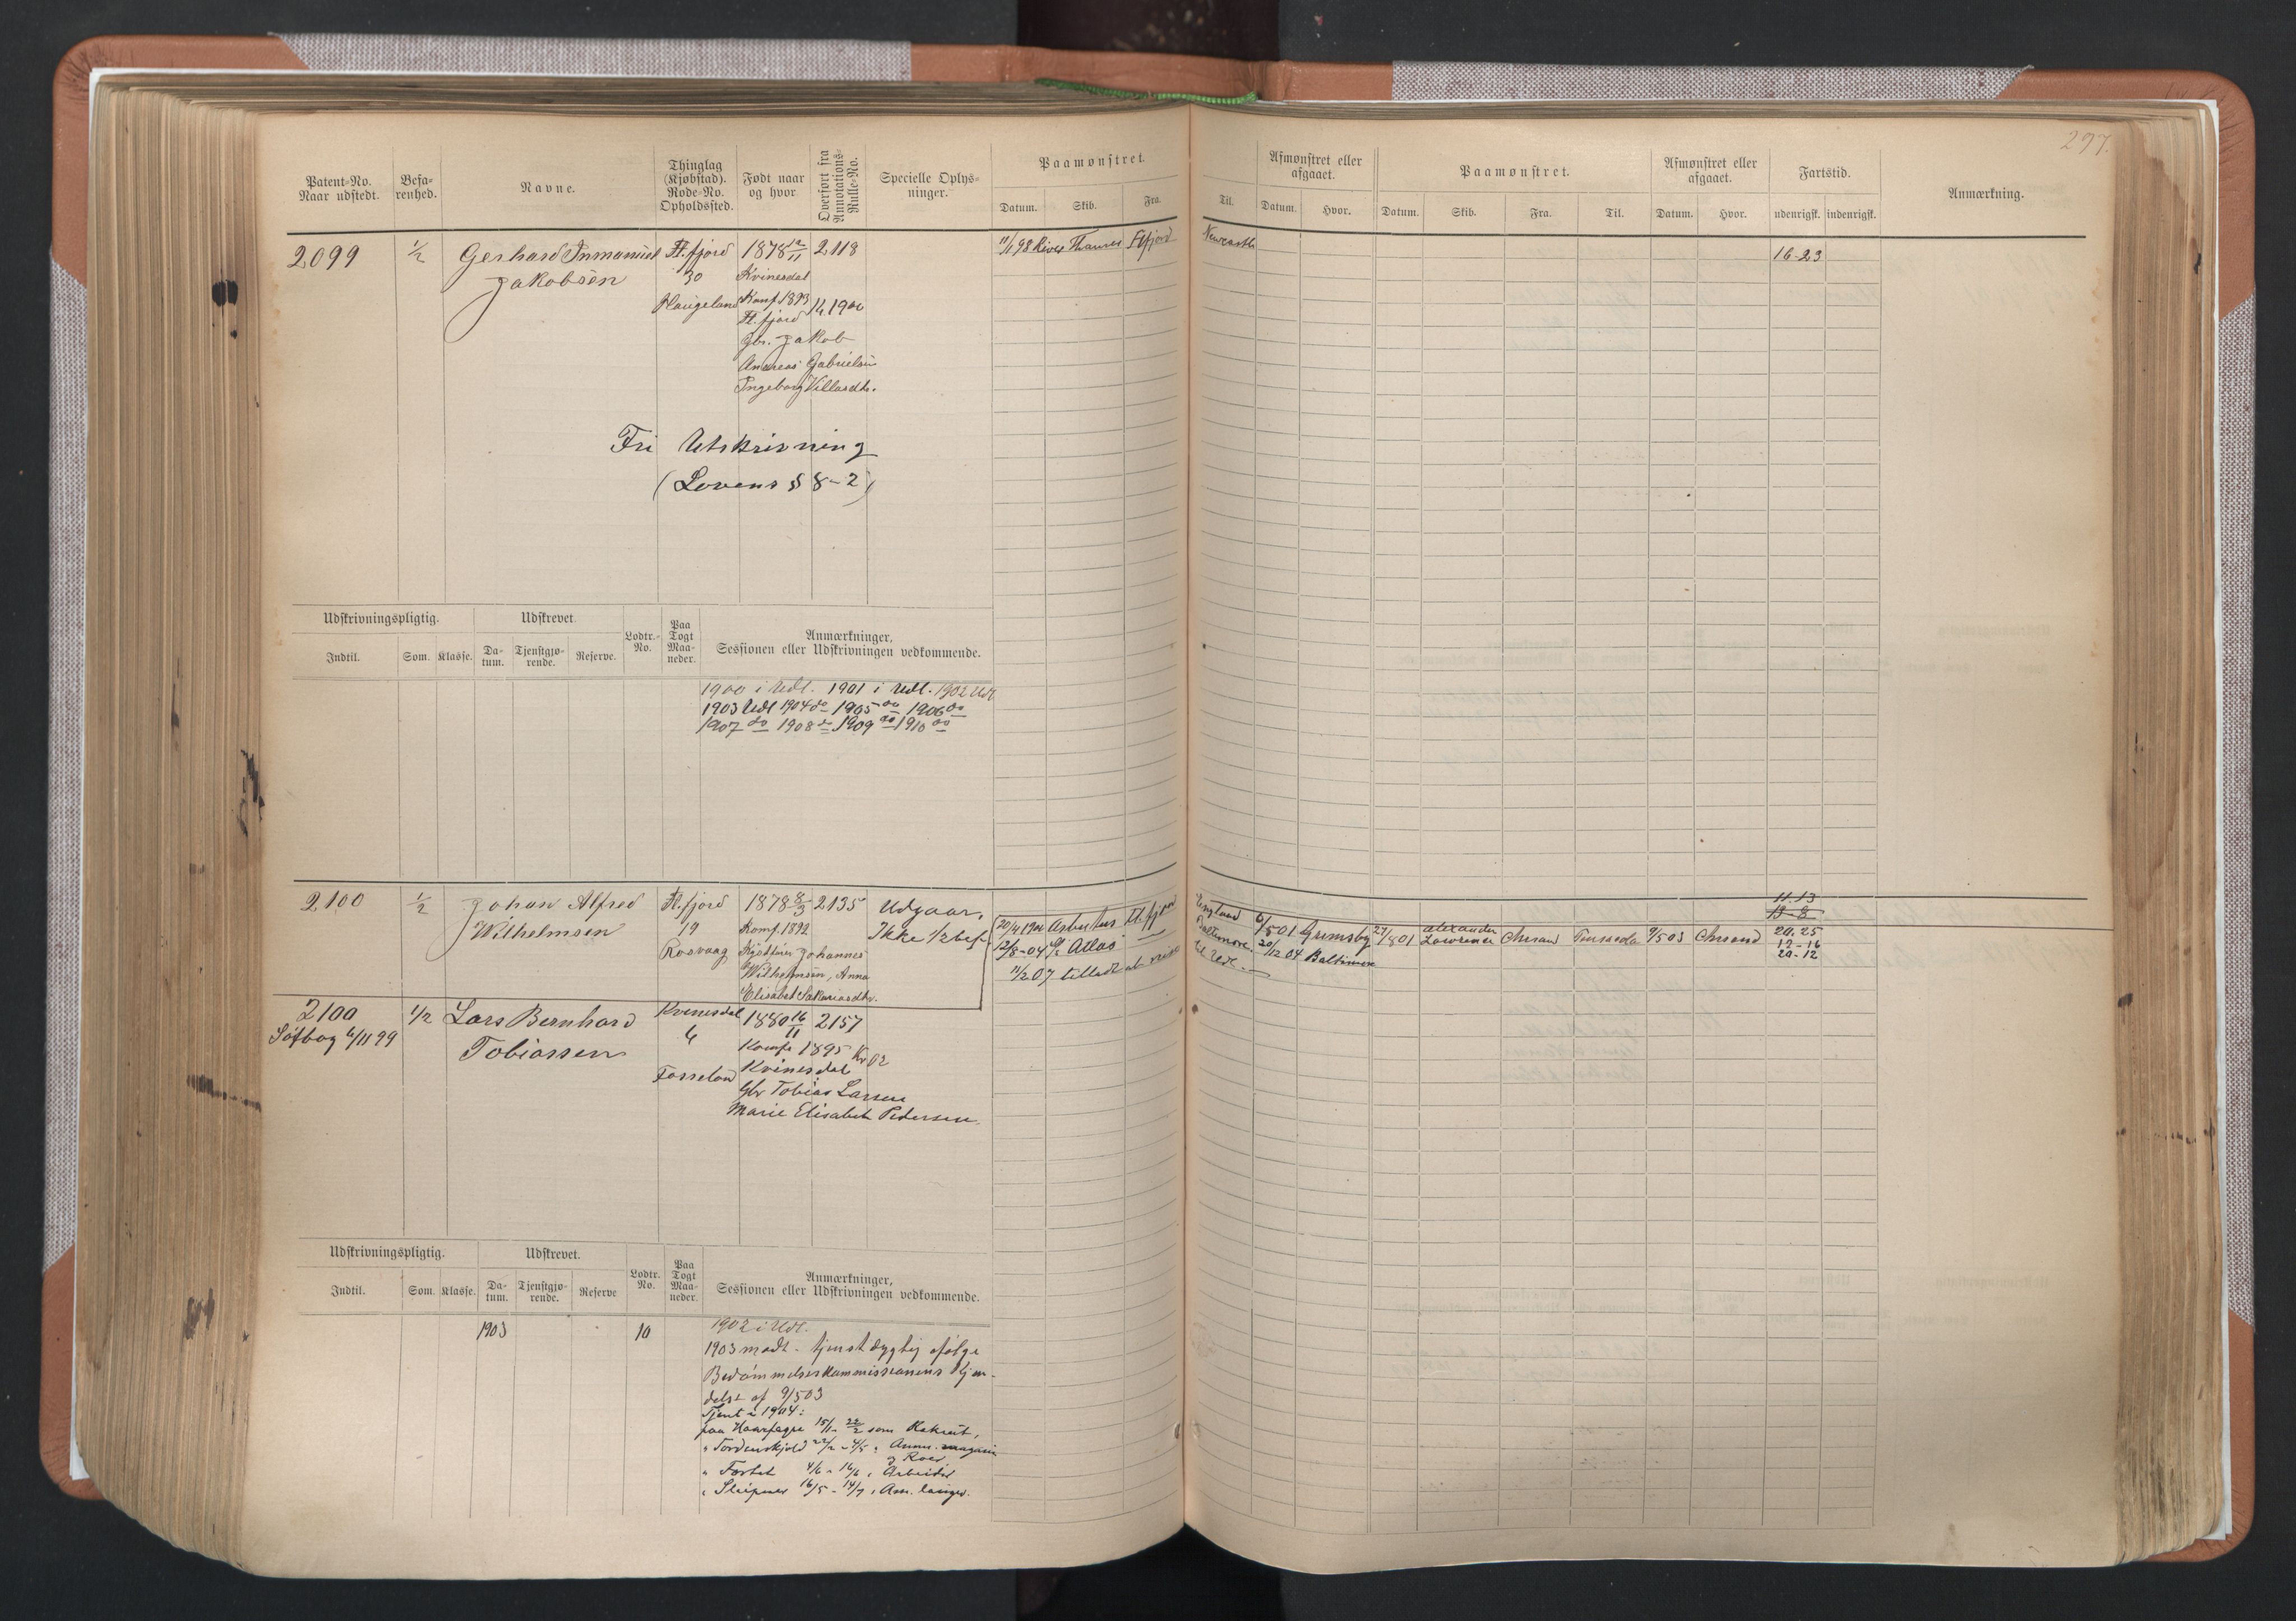 297.
Patent-No. Naar udstedt.
Befa-renhed.
Navne.
Thinglag (Kjøbstad). Rode-No. Opholdssted.
Født naar og hvor
Overført fra Annotations-Rulle-No.
Specielle Oplys-ninger.
Paamønstret.
Datum. Skib. Fra. Til.
Afmønstret eller afgaaet.
Datum. Hvor.
Paamønstret.
Datum. Skib. Fra. Til.
Afmønstret eller afgaaet.
Datum. Hvor.
Fartstid.
udenrigsk. indenrigsk.
Anmærkning.
2099 1/2 Gerhard Immanuel Fl.fjord 1878 12/11 2118
Jakobsen 30 Kvinesdal
Haugeland Konf. 1893 1900
Fl.fjord
Gbr. Jakob
Andreas Gabrielsen
Ingeborg Villasdtr.
11/1 98 River Thames Flfjord Newcastle
16-23
Fri Utskrivning
(Lovens § 8-2)
Udskrivningspligtig. Udskrevet.
Indtil. Som. Klasse. Da-tum. Tjenstgjø-rende. Reserve. Lodtr.-No. Paa Togt Maa-neder.
Anmærkninger,
Sessionen eller Udskrivningen vedkommende.
1900 i Udl. 1901 i Udl. 1902 Udl
1903 Udl 1904 do 1905 do 1906 do
1907 do 1908 do 1909 do 1910 do
2100 1/2 Johan Alfred Fl.fjord 1878 8/3 2135 Udgaar,
Wilhelmsen 19 Konf. 1892 Ikke 1/2 bef.
Rosvaag Johannes
Wilhelmsen, Anna
Elisabet Sakariasdtr.
20/4 1900 Arbutus Fl.fjord England 6/5 01 Grimsby 27/8 01 Alexander Lawrence Chrsand Pensacola 9/5 03 Chrsand
12/8-04 Atlas Baltimore 20/12 04 Baltimore
11/2 07 tilladt at reise til Udl.
11.13
13-8
20.25
12-16
20-12
2100 1/2 Lars Bernhard Kvinesdal 1880 16/11 2157
Søfbog 6/11 99 Tobiassen 6 Konf. 1895 Kr 02
Fosseland Kvinesdal
Gbr Tobias Larsen
Marie Elisabet Pedersen.
Udskrivningspligtig. Udskrevet.
Indtil. Som. Klasse. Da-tum. Tjenstgjø-rende. Reserve Lodtr. No. Paa Togt Maa-neder.
Anmærkninger,
Sessionen eller Udskrivningen vedkommende.
1903 10 1902 i Udl.
1903 mødt - tjenstdygtig ifølge
Bedømmelseskommissionens Kjen-
delse af 9/5 03
Tjent i 1904:
paa Haarfagre 15/1 - 22/2 som Rekrut,
" Tordenskjold 22/2 - 4/5 " Amm. magasin
og Roer
" Fortet 4/6 - 16/6 " Arbeider
" Sleipner 16/5 - 14/7 " Am. langer.